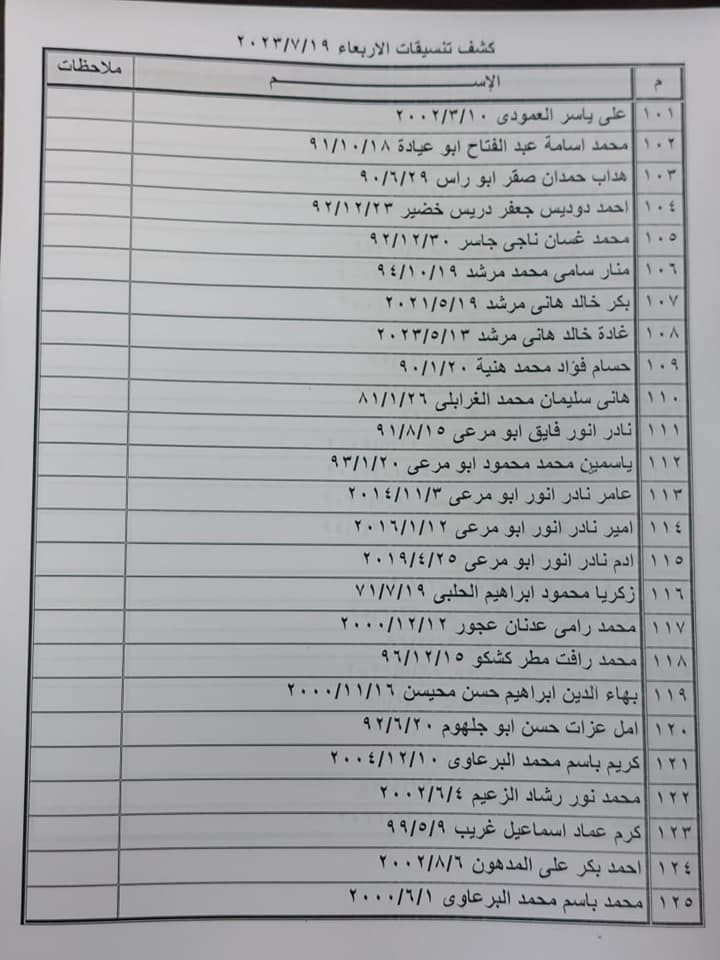 كشف تنسيقات الاربعاء ٢٠٢٣/٧/١٩
م الإســــــــم ملاحظات
١٠١ على ياسر العمودى ٢٠٠٢/٣/١٠
١٠٢ محمد اسامة عبد الفتاح ابو عيادة ٩١/١٠/١٨
١٠٣ هداب حمدان صقر ابو راس ٩٠/٦/٢٩
١٠٤ احمد دوديس جعفر دريس خضير ٩٢/١٢/٢٣
١٠٥ محمد غسان ناجى جاسر ٩٢/١٢/٣٠
١٠٦ منار سامى محمد مرشد ٩٤/١٠/١٩
١٠٧ بكر خالد هانى مرشد ٢٠٢١/٥/١٩
١٠٨ غادة خالد هانى مرشد ٢٠٢٣/٥/١٣
١٠٩ حسام فؤاد محمد هنية ٩٠/١/٢٠
١١٠ هانى سليمان محمد الغرابلى ٨١/١/٢٦
١١١ نادر انور فايق ابو مرعى ٩١/٨/١٥
١١٢ ياسمين محمد محمود ابو مرعى ٩٣/١/٢٠
١١٣ عامر نادر انور ابو مرعى ٢٠١٤/١١/٣
١١٤ امير نادر انور ابو مرعى ٢٠١٦/١/١٢
١١٥ ادم نادر انور ابو مرعى ٢٠١٩/٤/٢٥
١١٦ زكريا محمود ابراهيم الحلبى ٧١/٧/١٩
١١٧ محمد رامى عدنان عجور ٢٠٠٠/١٢/١٢
١١٨ محمد رافت مطر كشكو ٩٦/١٢/١٥
١١٩ بهاء الدين ابراهيم حسن محيسن ٢٠٠٠/١١/١٦
١٢٠ امل عزات حسن ابو جلهوم ٩٢/٦/٢٠
١٢١ كريم باسم محمد البرعاوى ٢٠٠٤/١٢/١٠
١٢٢ محمد نور رشاد الزعيم ٢٠٠٢/٦/٤
١٢٣ كرم عماد اسماعيل غريب ٩٩/٥/٩
١٢٤ احمد بكر على المدهون ٢٠٠٢/٨/٦
١٢٥ محمد باسم محمد البرعاوى ٢٠٠٠/٦/١